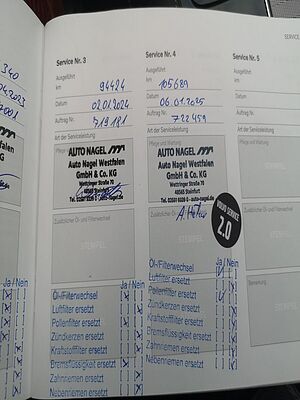 SERVICE
340
Service Nr. 3
Ausgeführt
km 94424
Datum 02.01.2024
Auftrag Nr. 719181
Art der Serviceleistung
Pflege und Wartung
AUTO NAGEL
Auto Nagel Westfalen
GmbH & Co. KG
Wettringer Straße 70
48565 Steinfurt
Zusätzlicher Öl- und Filterwechsel
STEMPEL
Ja / Nein
Öl-/Filterwechsel
Luftfilter ersetzt
Pollenfilter ersetzt
Zündkerzen ersetzt
Kraftstofffilter ersetzt
Bremsflüssigkeit ersetzt
Zahnriemen ersetzt
Nebenriemen ersetzt
Service Nr. 4
Ausgeführt
km 105689
Datum 06.01.2025
Auftrag Nr. 722459
Art der Serviceleistung
Pflege und Wartung
AUTO NAGEL
Auto Nagel Westfalen
GmbH & Co. KG
Wettringer Straße 70
48565 Steinfurt
Zusätzlicher Öl- und Filterwechsel
STEMPEL
SERVICE
2.0
Ja / Nein
Öl-/Filterwechsel
Luftfilter ersetzt
Pollenfilter ersetzt
Zündkerzen ersetzt
Kraftstofffilter ersetzt
Bremsflüssigkeit ersetzt
Zahnriemen ersetzt
Nebenriemen ersetzt
Service Nr. 5
Ausgeführt
km
Datum
Auftrag Nr.
Art der Serviceleistung
Pflege und Wartung
STEMPEL
Zusätzlicher Öl- und
STEMPEL
Bemerkung